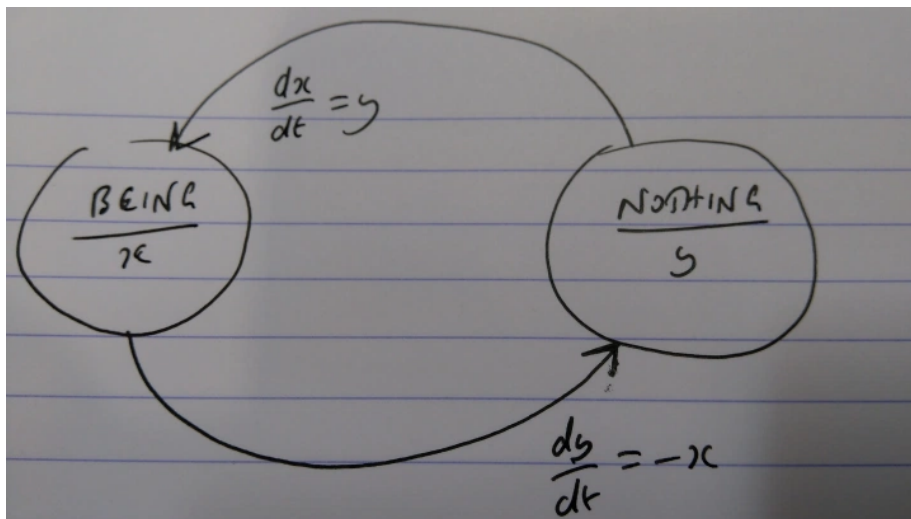 dx/dt = y
BEING
x
NOTHING
y
dy/dt = -x